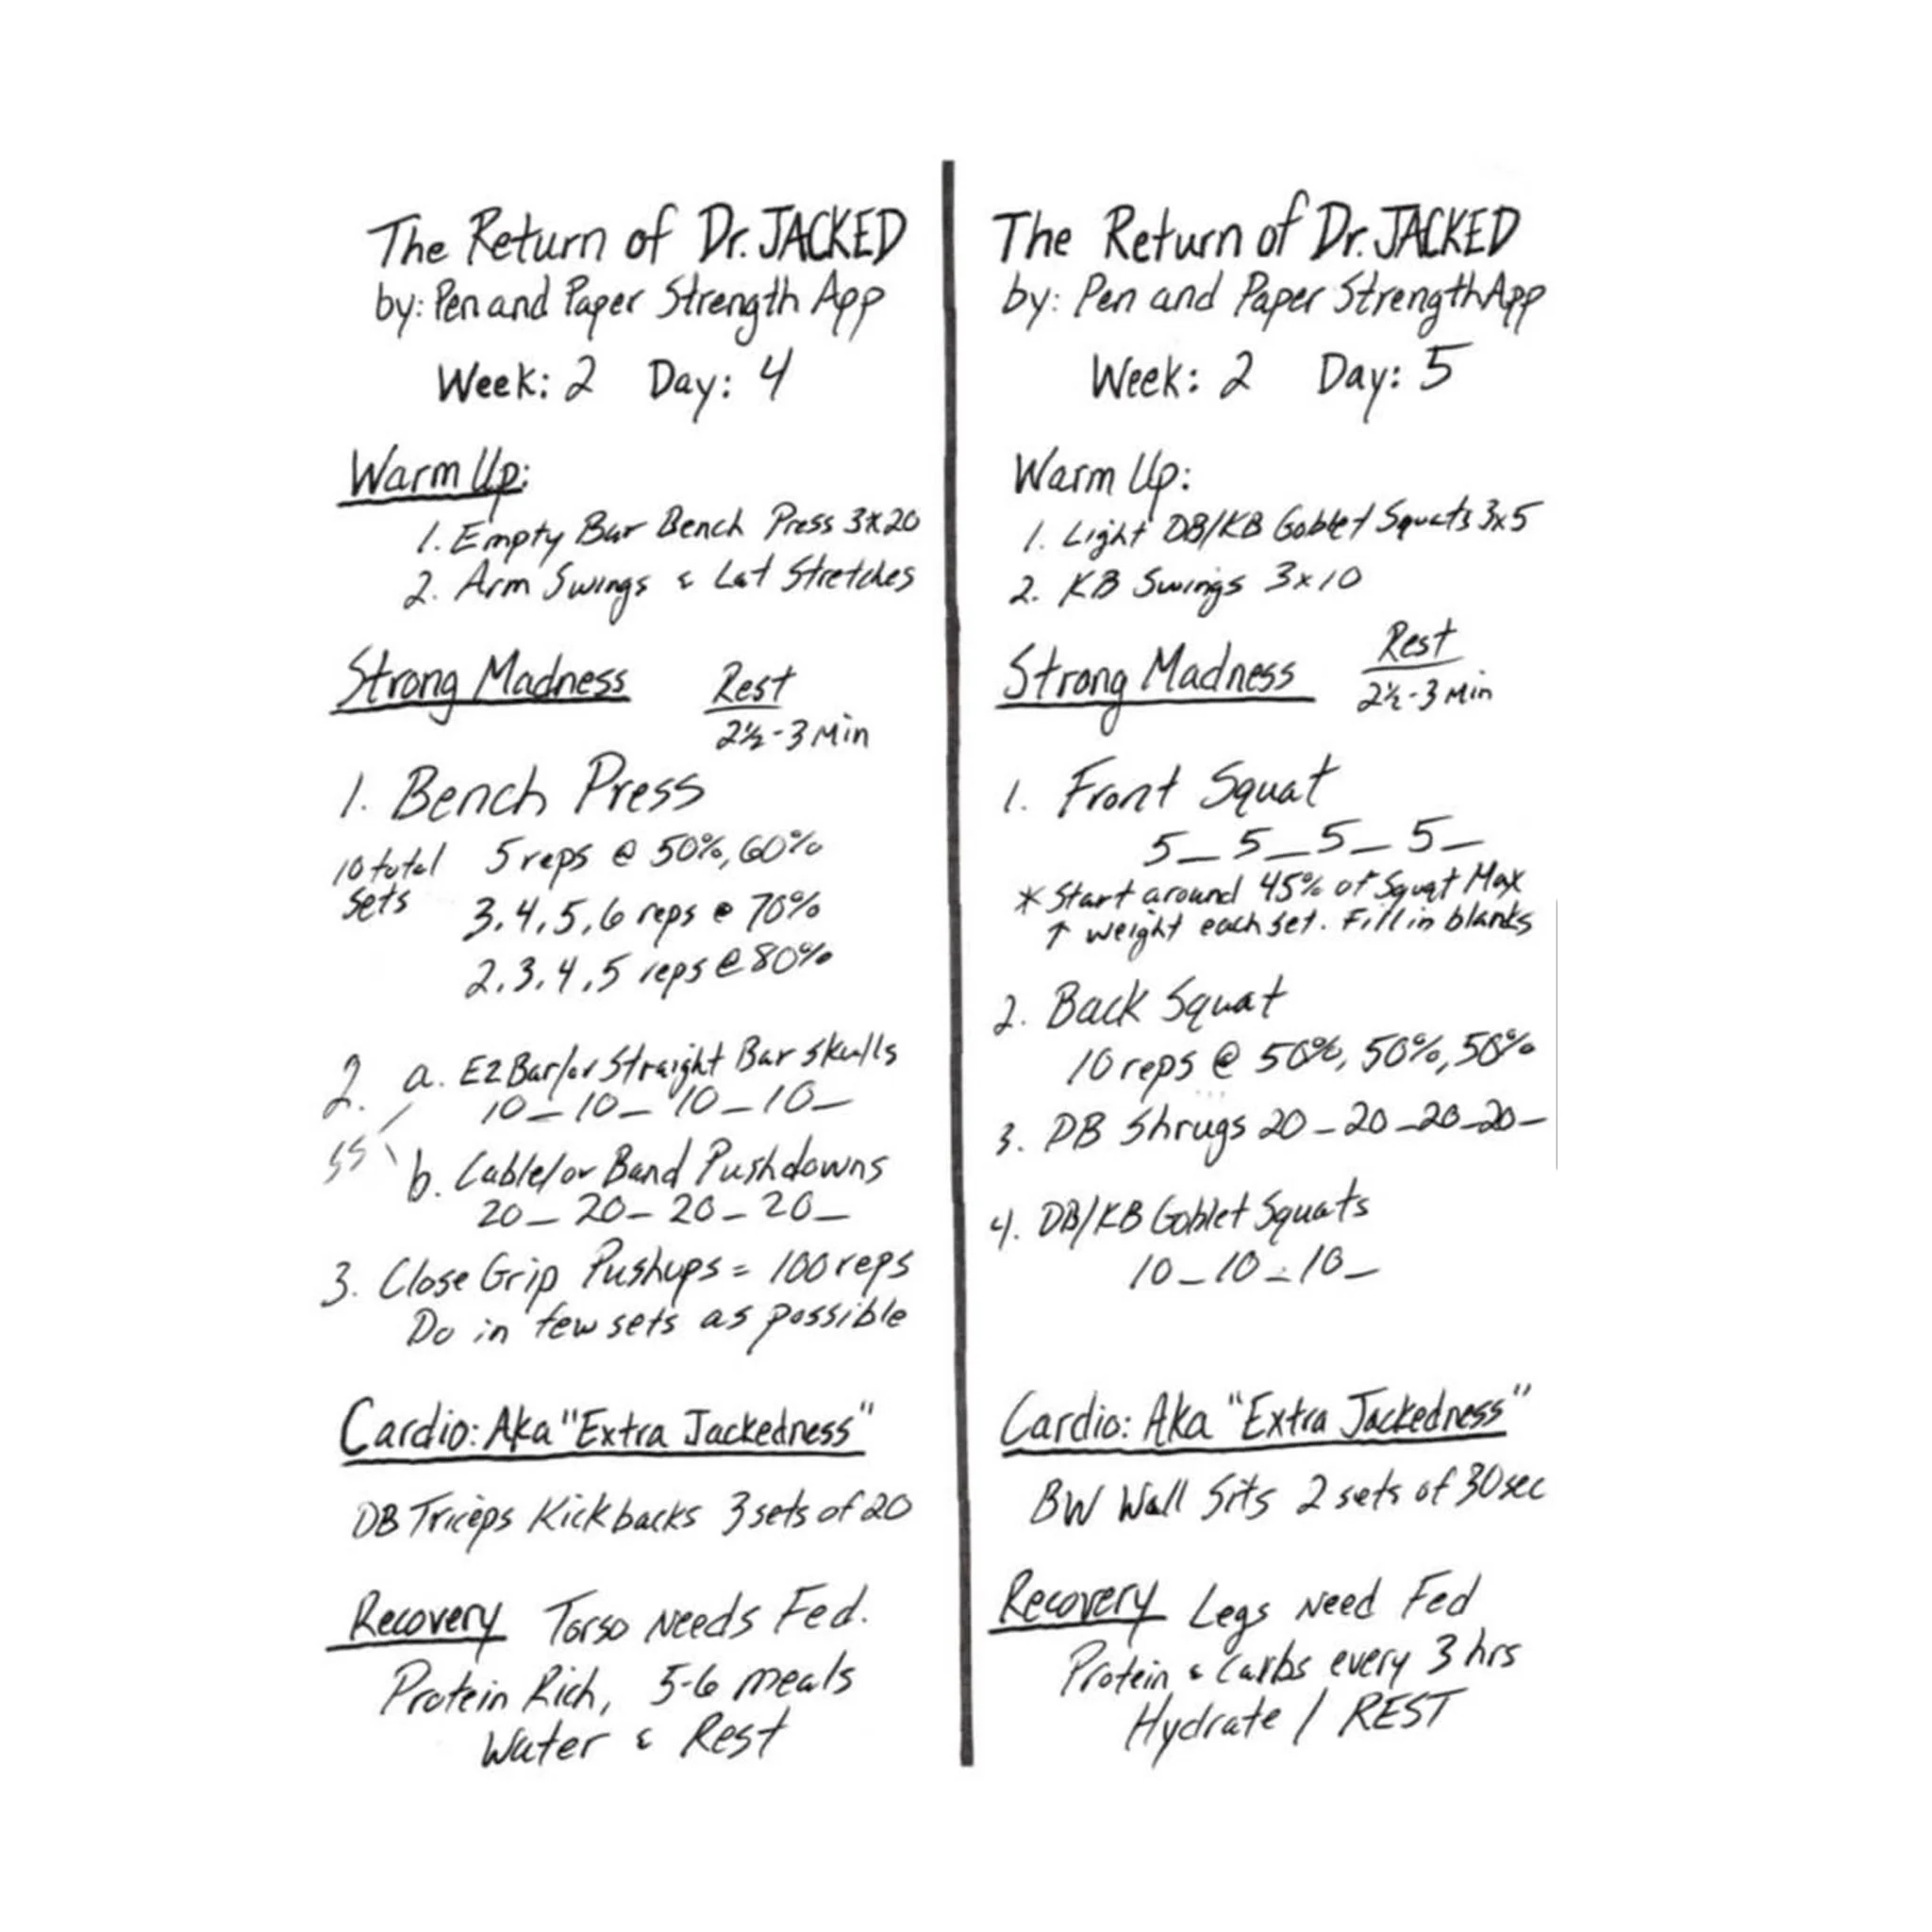 The Return of Dr. JACKED
by: Pen and Paper Strength App
Week: 2 Day: 4
Warm Up:
1. Empty Bar Bench Press 3x20
2. Arm Swings & Lat Stretches
Strong Madness
Rest
2½-3 Min
1. Bench Press
10 total sets
5 reps @ 50%, 60%
3, 4, 5, 6 reps @ 70%
2, 3, 4, 5 reps @ 80%
2. a. EZ Bar/or Straight Bar Skulls
10_ 10_ 10_ 10_
SS
b. Cable/or Band Pushdowns
20_ 20_ 20_ 20_
3. Close Grip Pushups = 100 reps
Do in few sets as possible
Cardio: Aka "Extra Jackedness"
DB Triceps Kickbacks 3 sets of 20
Recovery Torso Needs Fed.
Protein Rich, 5-6 meals
Water & Rest
The Return of Dr. JACKED
by: Pen and Paper Strength App
Week: 2 Day: 5
Warm Up:
1. Light DB/KB Goblet Squats 3x5
2. KB Swings 3x10
Strong Madness
Rest
2½-3 Min
1. Front Squat
5_ 5_ 5_ 5_
* Start around 45% of Squat Max
↑ weight each set. Fill in blanks
2. Back Squat
10 reps @ 50%, 50%, 50%
3. DB Shrugs 20_ 20_ 20_ 20_
4. DB/KB Goblet Squats
10_ 10_ 10_
Cardio: Aka "Extra Jackedness"
BW Wall Sits 2 sets of 30 sec
Recovery Legs Need Fed
Protein & Carbs every 3 hrs
Hydrate / REST